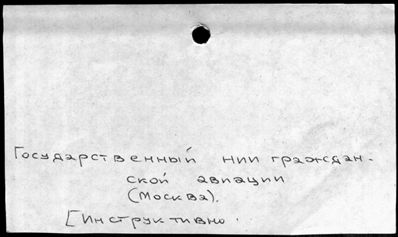 Государственный нии граждан-
ской авиации
(Москва).
[Инструктивно.